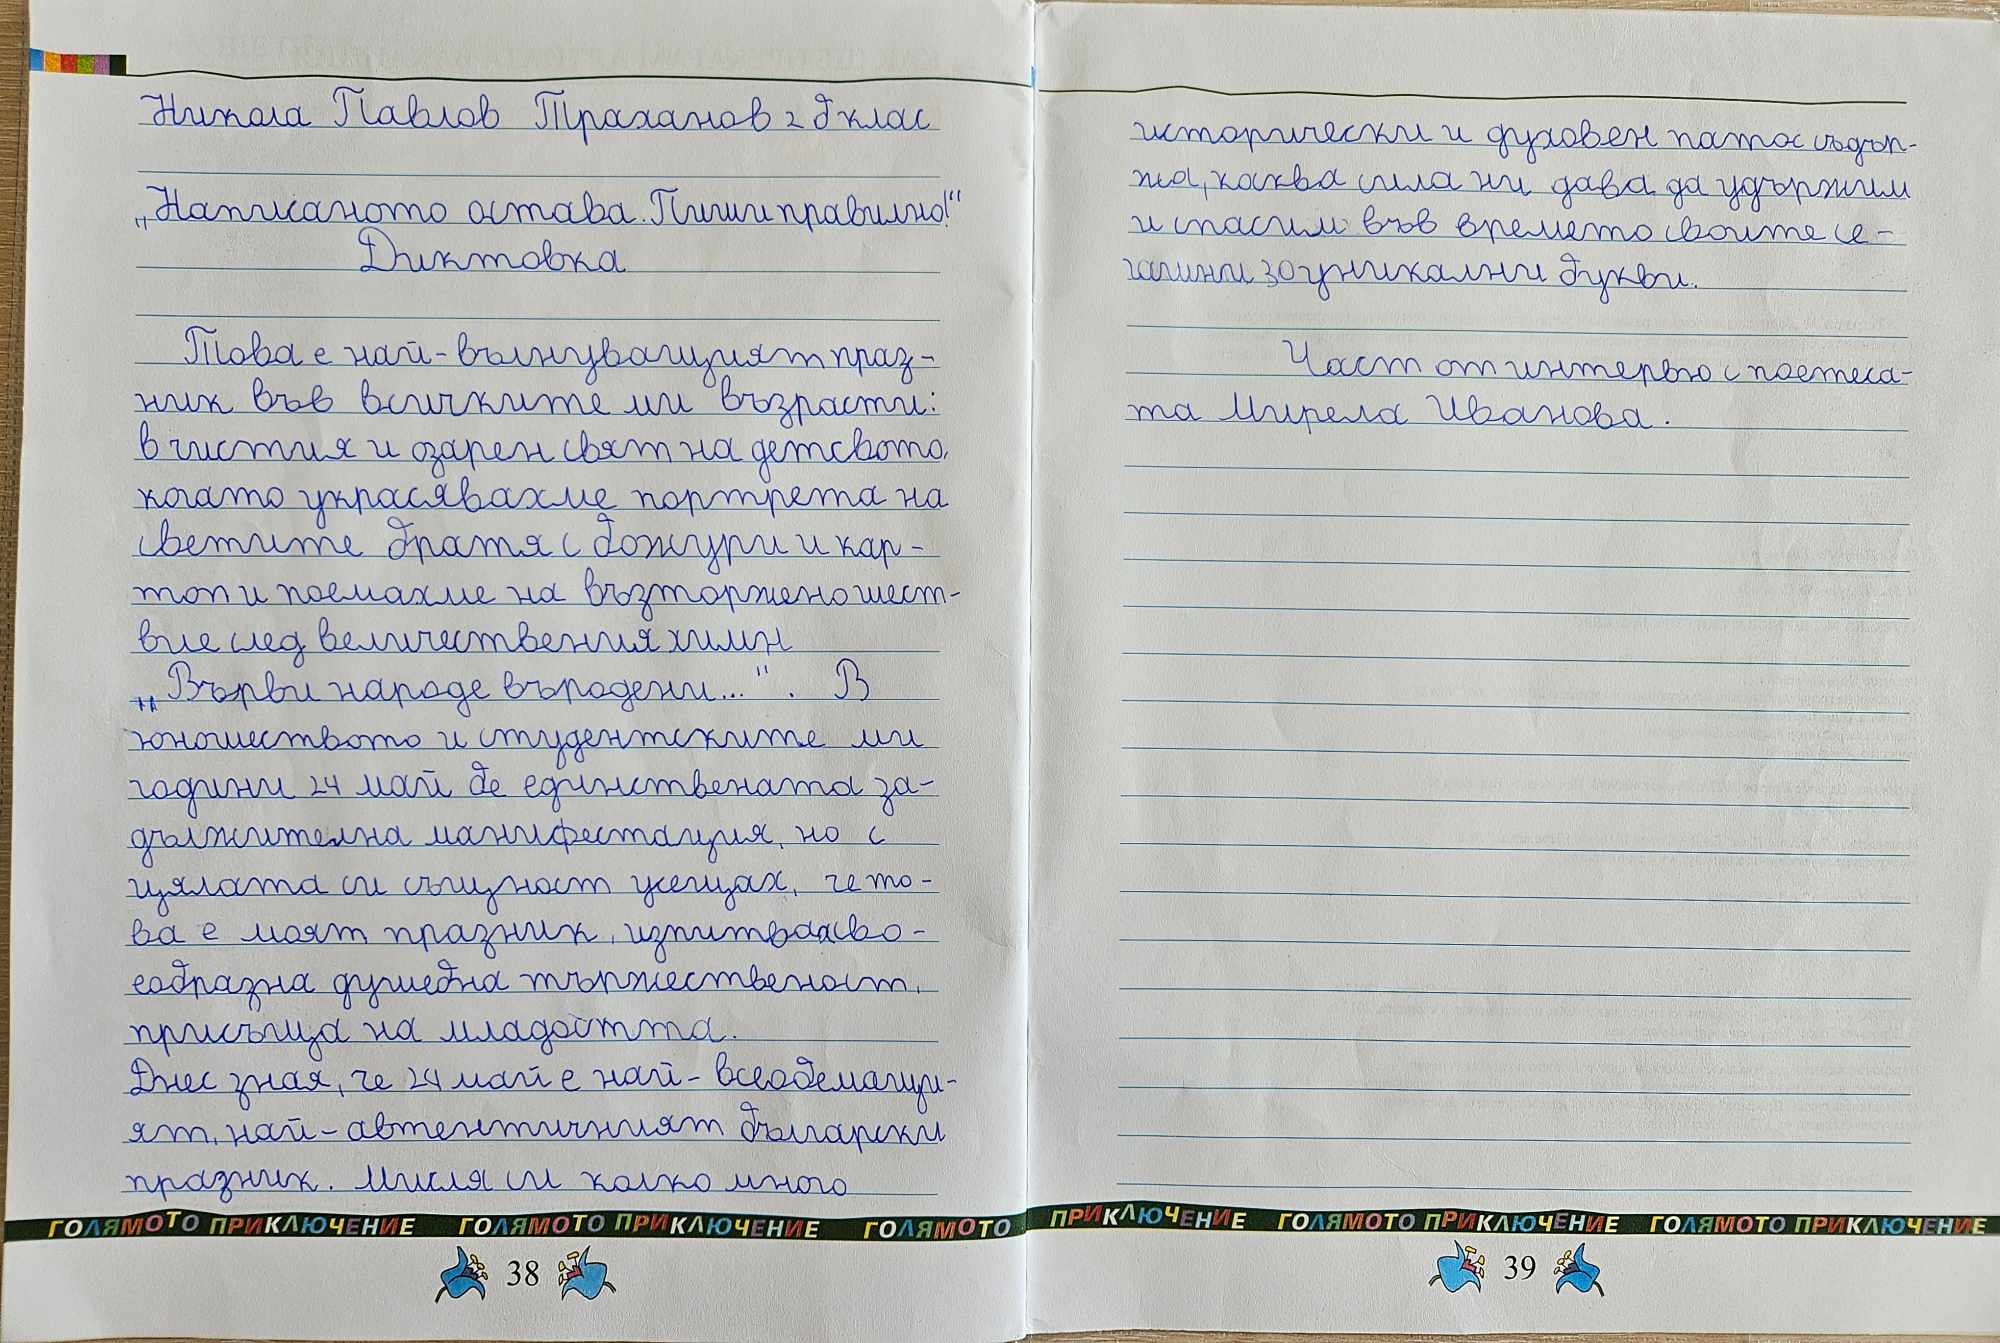 Никола Павлов Траханов 2 б клас
„Написаното остава. Пиши правилно!“
Диктовка
Това е най-вълнуващият праз-
ник във всичките ми възрасти:
в чистия и озарен свят на детсвото,
когато украсявахме портрета на
светите братя с божури и кар-
топ и поемахме на възторжено шест-
вие след величествения химн
„Върви народе възродени...“. В
юношеството и студентските ми
години 24 май бе единствената за-
дължителна манифестация, но с
цялата си същност усещах, че то-
ва е моят празник, изпитвах сво-
еобразна душевна тържественост,
присъща на младостта.
Днес зная, че 24 май е най-всеобемащи-
ят, най-автентичният български
празник. Мисля си колко много
исторически и духовен патос съдър-
жа, каква сила ни дава да удържим
и спасим във времето своите се-
гашни 30 уникални букви.
Част от интервю с поетеса-
та Мирела Иванова.
ГОЛЯМОТО ПРИКЛЮЧЕНИЕ ГОЛЯМОТО ПРИКЛЮЧЕНИЕ ГОЛЯМОТО ПРИКЛЮЧЕНИЕ ГОЛЯМОТО ПРИКЛЮЧЕНИЕ ГОЛЯМОТО ПРИКЛЮЧЕНИЕ
38
39